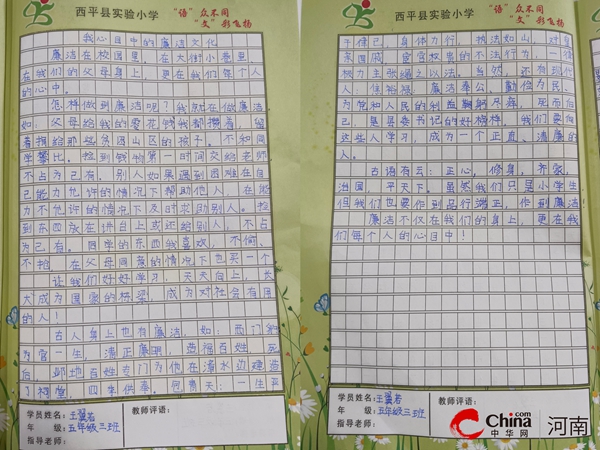 西平县实验小学
“语”众不同
“文”彩飞扬
我心目中的廉洁文化
廉洁在校园里,在大街小巷里,
在我们的父母身上,更在我们每个人
的心中。
怎样做到廉洁呢?我就在做廉洁
如:父母给我的零花钱我都攒着,留
着捐给那些贫困山区的孩子。不和同
学攀比。捡到钱物第一时间交给老师
不占为己有,别人如果遇到困难在自
己能力允许的情况下帮助他人,在能
力不允许的情况下及时求助别人。捡
到东西放在讲台上或还给别人,不占
为己有。同学的东西我喜欢,不偷、
不抢,在父母同意的情况下也买一个
让我们好好学习,天天向上,长
大成为国家的栋梁,成为对社会有用
的人!
古人身上也有廉洁,如:西门豹
为官一生,清正廉明,造福百姓,死
后,邺地百姓专门为他在漳水边建造
了祠堂,四季供奉。包青天:一生平
学员姓名:王翼若
年 级:五年级三班
指导老师:
教师评语:
西平县实验小学
“语”众不同
“文”彩飞扬
于律己,身体力行,执法如山,对身
家国戚、宦官权贵的不法行为,一律
极力主张绳之以法。当然,还有现代
人:焦裕禄,廉洁奉公,勤俭为民、
为党和人民的利益鞠躬尽瘁,死而后
已,是县委书记的好榜样,我们要向
这些人学习,成为一个正直、清廉的
人。
古语有云:正心,修身,齐家,
治国,平天下。虽然我们只是小学生
但我们也要作到品行端正,作到廉洁!
廉洁不仅在我们的身上,更在我
们每个人的心目中!
学员姓名:王翼若
年 级:五年级三班
指导老师:
教师评语:
China
.com
中华网
河南